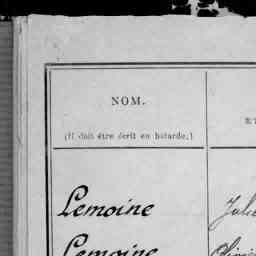 NOM.
(Il doit être écrit en batarde.)
Lemoine
Lemoine